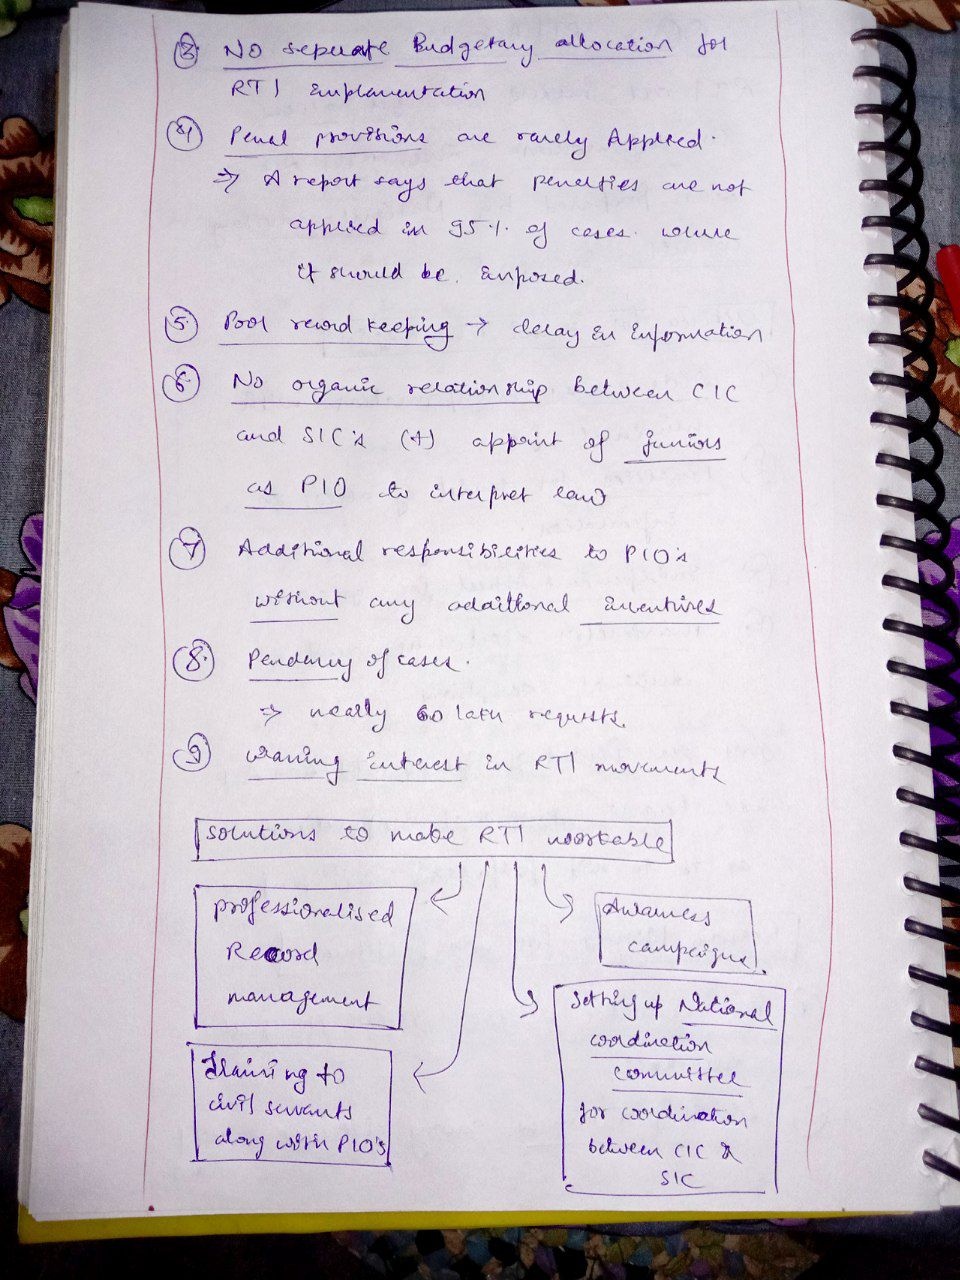 ③ No seperate Budgetary allocation for
RTI implementation
④ Penal provisions are rarely Applied.
⇒ A report says that penalties are not
applied in 95% of cases where
it should be imposed.
⑤ Poor record keeping → delay in information
⑥ No organic relationship between CIC
and SIC's (+) appoint of juniors
as PIO to interpret law
⑦ Additional responsibilities to PIO's
without any additional incentives
⑧ Pendency of cases.
⇒ nearly 60 lakh requests.
⑨ waning interest in RTI movements
solutions to make RTI workable
professionalised
Record
management
Awarness
campaigns
Training to
civil servants
along with PIO's
setting up National
coordination
committee
for coordination
between CIC &
SIC